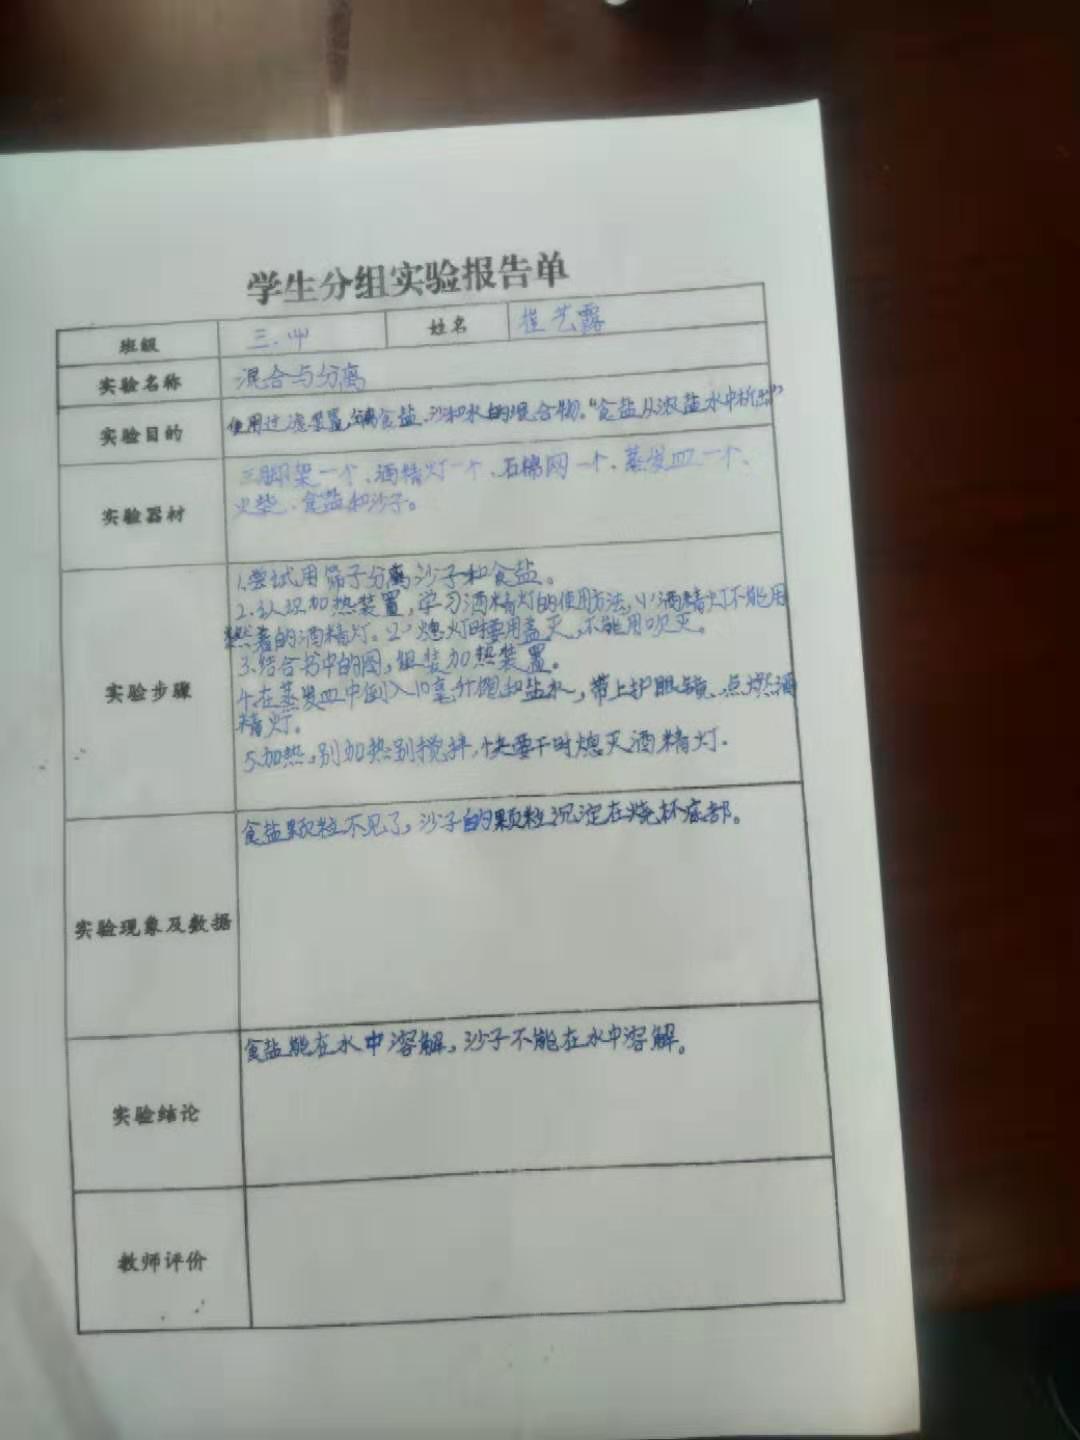 学生分组实验报告单
班级 三.(4) 姓名 崔艺露
实验名称 混合与分离
实验目的 使用过滤装置,分离食盐、沙和水的混合物。“食盐从浓盐水中析出”
实验器材
三脚架一个、酒精灯一个、石棉网一个、蒸发皿一个、
火柴、食盐和沙子。
实验步骤
1.尝试用筛子分离沙子和食盐。
2.认识加热装置,学习酒精灯的使用方法,(1)酒精灯不能用
燃着的酒精灯。(2)熄灯时要用盖灭,不能用吹灭。
3.结合书中的图,组装加热装置。
4.在蒸发皿中倒入10毫升饱和盐水,带上护眼镜、点燃酒
精灯。
5.加热,别加热别搅拌,快要干时熄灭酒精灯.
实验现象及数据
食盐颗粒不见了,沙子的颗粒沉淀在烧杯底部。
实验结论
食盐能在水中溶解,沙子不能在水中溶解。
教师评价